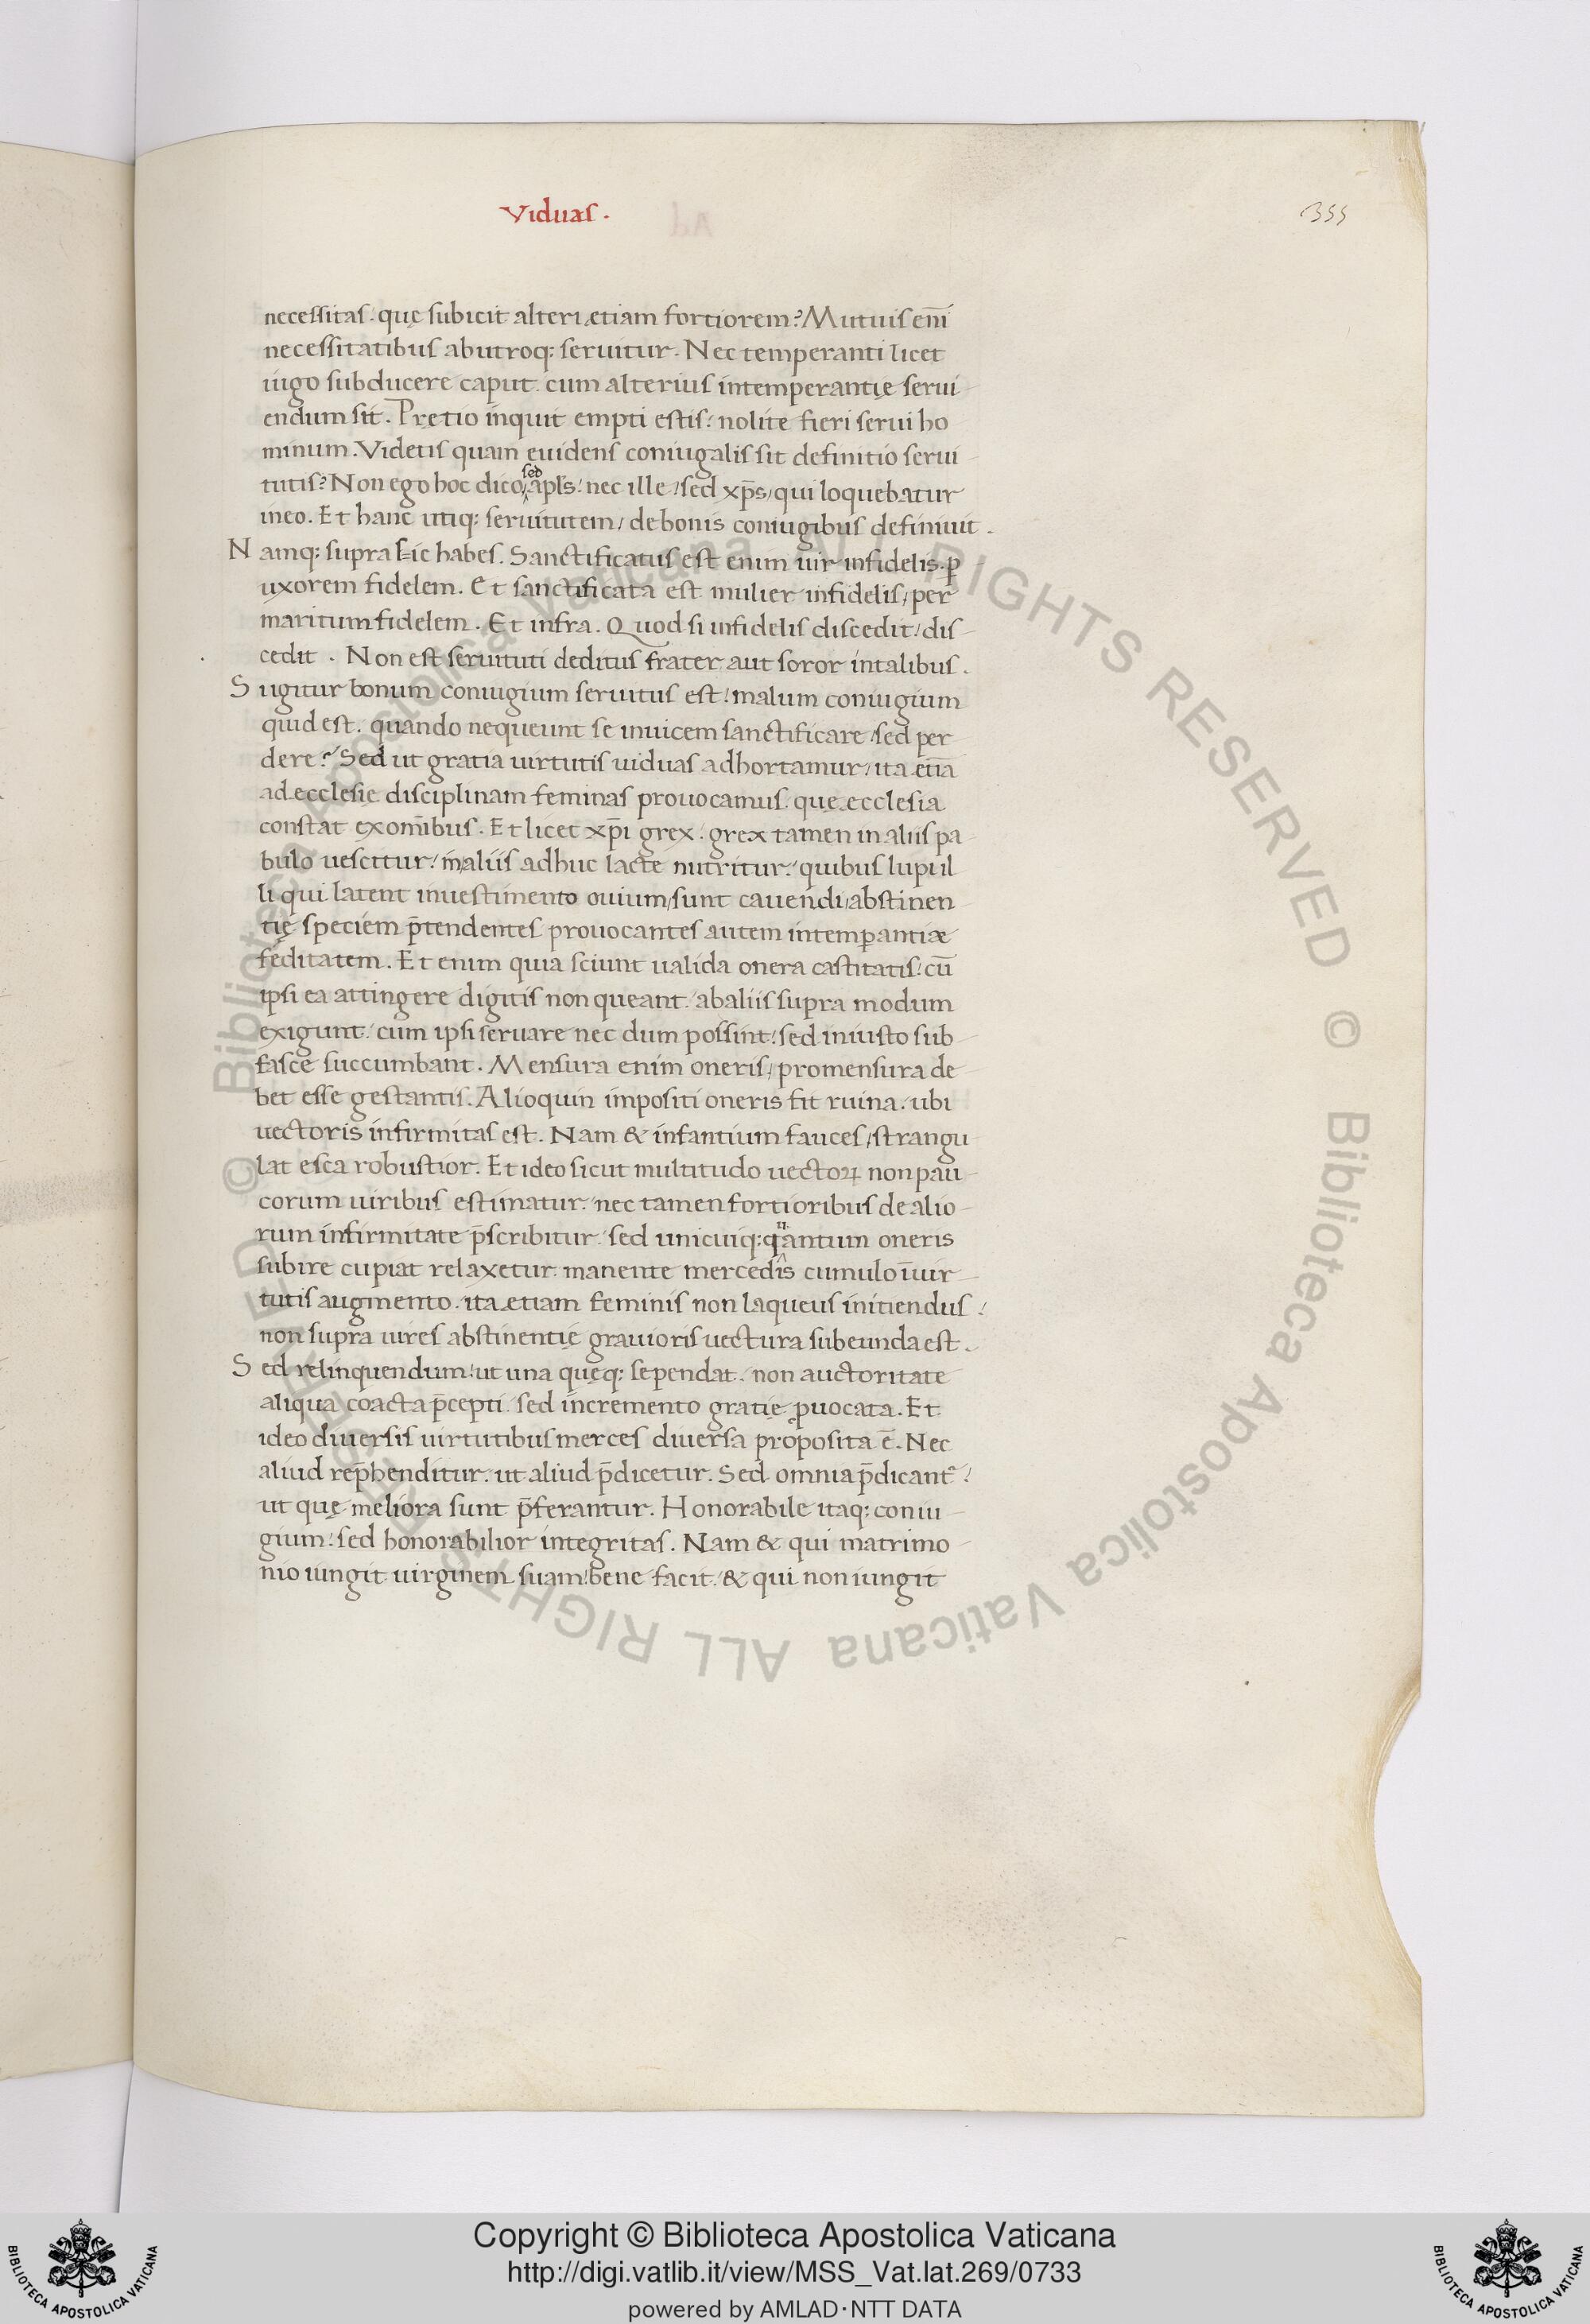 Viduas.
355
necessitas. quę subicit alteri etiam fortiorem? Mutuis enı̄
necessitatibus ab utroq; seruitur. Nec temperanti licet
iugo subducere caput. cum alterius intemperantię serui
endum sit. Pretio inquit empti estis! nolite fieri serui ho
minum. Videtis quam euidens coniugalis sit definitio serui
tutis? Non ego hoc dico, sed apl̄s! nec ille / sed xp̄s / qui loquebatur
in eo. Et hanc utiq; seruitutem / de bonis coniugibus definiuit.
Namq; supra sic habes. Sanctificatus est enim uir infidelis. ꝑ
uxorem fidelem. Et sanctificata est mulier infidelis / per
maritum fidelem. Et infra. Quod si infidelis discedit / dis
cedit. Non est seruituti deditus frater aut soror in talibus.
Si igitur bonum coniugium seruitus est! malum coniugium
quid est. quando nequeunt se inuicem sanctificare / sed per
dere? Sed ut gratia uirtutis uiduas adhortamur / ita etiā
ad ecclesie disciplinam feminas prouocamus. quę ecclesia
constat ex om̄ibus. Et licet xp̄i grex. grex tamen in aliis pa
bulo uescitur! in aliis adhuc lacte nutritur. quibus lupi il
li qui latent in uestimento ouium / sunt cauendi / abstinen
tię speciem p̄tendentes prouocantes autem intemꝑantiæ
feditatem. Et enim quia sciunt ualida onera castitatis! cū
ipsi ea attingere digitis non queant. ab aliis supra modum
exigunt. cum ipsi seruare nec dum possint! sed iniusto sub
fasce succumbant. Mensura enim oneris / pro mensura de
bet esse gestantis. Alioquin impositi oneris fit ruina. ubi
uectoris infirmitas est. Nam & infantium fauces / strangu
lat esca robustior. Et ideo sicut multitudo uectoꝝ non pau
corum uiribus estimatur. nec tamen fortioribus de alio
rum infirmitate p̄scribitur. sed unicuiq; quantum oneris
subire cupiat relaxetur. manente mercedis cumulo ī uir
tutis augmento. ita etiam feminis non laqueus initiendus!
non supra uires abstinentię grauioris uectura subeunda est.
Sed relinquendum! ut una quęq; se pendat. non auctoritate
aliqua coacta p̄cepti. sed incremento gratię ꝓuocata. Et
ideo diuersis uirtutibus merces diuersa proposita ē. Nec
aliud rep̄henditur. ut aliud p̄dicetur. Sed omnia p̄dicant᷑!
ut quę meliora sunt p̄ferantur. Honorabile itaq; coniu
gium! sed honorabilior integritas. Nam & qui matrimo
nio iungit uirginem suam / bene facit. & qui non iungit
© Biblioteca Apostolica Vaticana ALL RIGHTS RESERVED
© Biblioteca Apostolica Vaticana ALL RIGHTS RESERVED
Copyright © Biblioteca Apostolica Vaticana
http://digi.vatlib.it/view/MSS_Vat.lat.269/0733
powered by AMLAD·NTT DATA
BIBLIOTECA APOSTOLICA VATICANA
BIBLIOTECA APOSTOLICA VATICANA